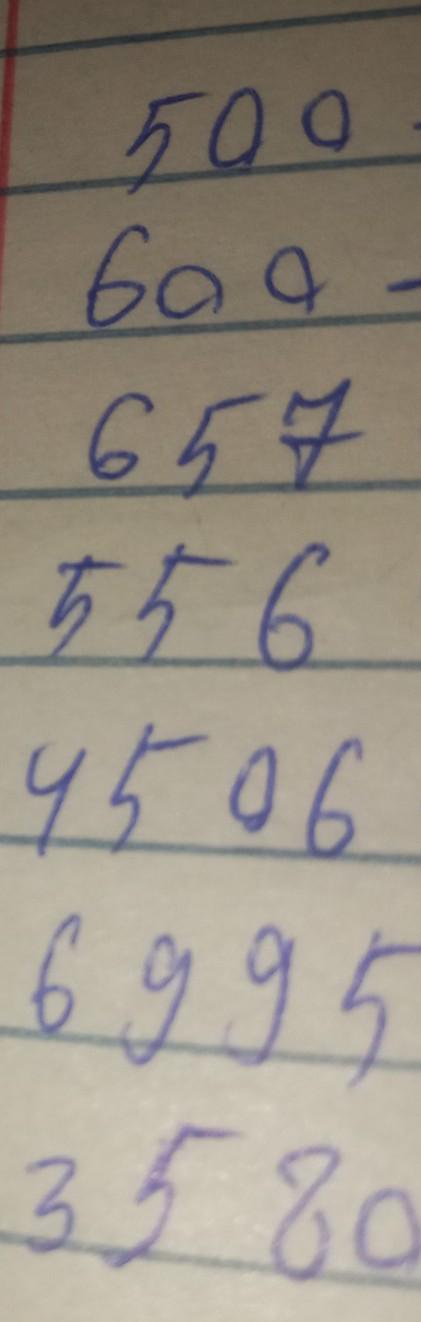 500-
600-
657
556
4506
6995
3580